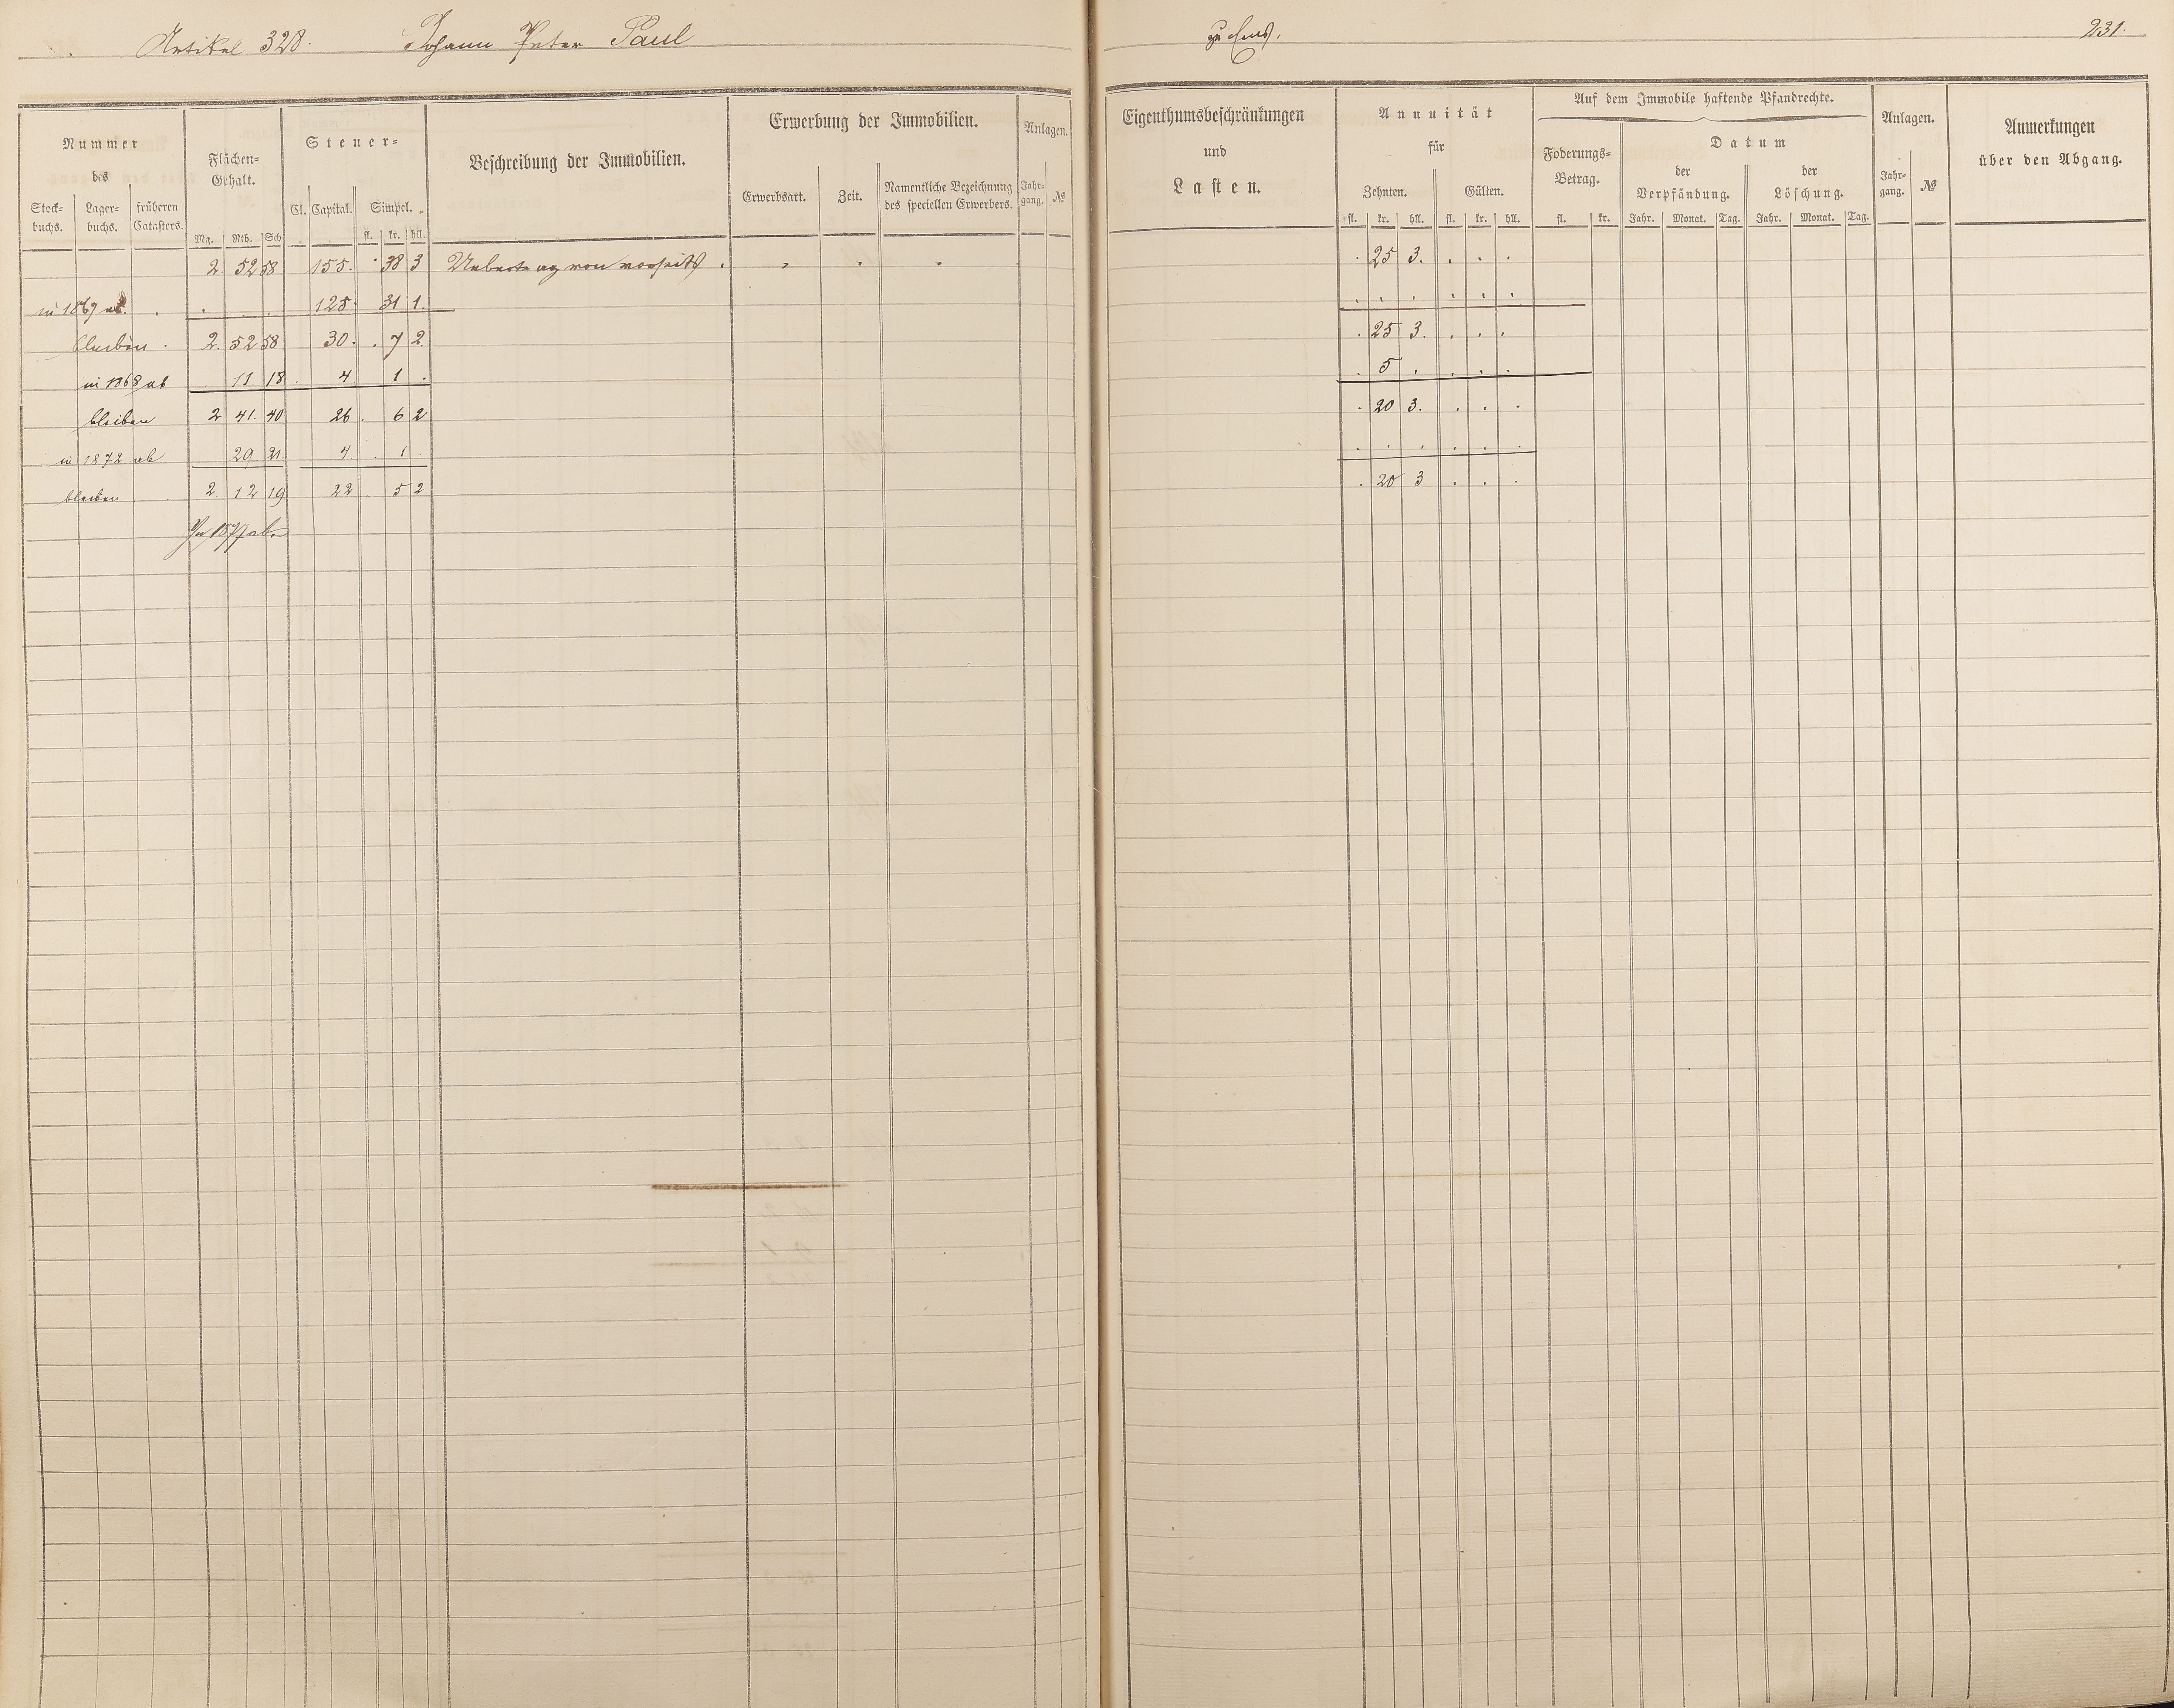 Artikel 328. Johann Peter Paul zu Ems. 231.
Nummer des
Stock-buchs. Lager-buchs. früheren Catasters.
Flächen-Gehalt.
Mg. Rth. Sch
Steuer-
Cl. Capital. Simpel.
fl. kr. hll.
Beschreibung der Immobilien.
Erwerbung der Immobilien.
Erwerbsart. Zeit. Namentliche Bezeichnung des speciellen Erwerbers.
Anlagen.
Jahr-gang. №
Eigenthumsbeschränkungen
und
Lasten.
Annuität
für
Zehnten. Gülten.
fl. kr. hll. fl. kr. hll.
Auf dem Immobile haftende Pfandrechte.
Foderungs-Betrag.
fl. kr.
Datum
der Verpfändung. der Löschung.
Jahr. Monat. Tag. Jahr. Monat. Tag.
Anlagen.
Jahr-gang. №
Anmerkungen
über den Abgang.
2. 52 58 155. . 38 3 Uebertrag von vorseits . " " " . 25 3. . . .
in 1867 ab. . . . . 125. 31 1. . . . . . .
bleiben . 2. 52 58 30. . 7 2. . 25 3. . . .
in 1868 ab 11. 18. 4. 1 . . 5 . . . .
bleiben 2 41. 40 26 . 6 2 . 20 3. . . .
in 1872 ab 29 21 4 . 1 . . . . . . .
bleiben 2. 12 19 22 5 2. . 20 3 . . .
In 1877 ab.